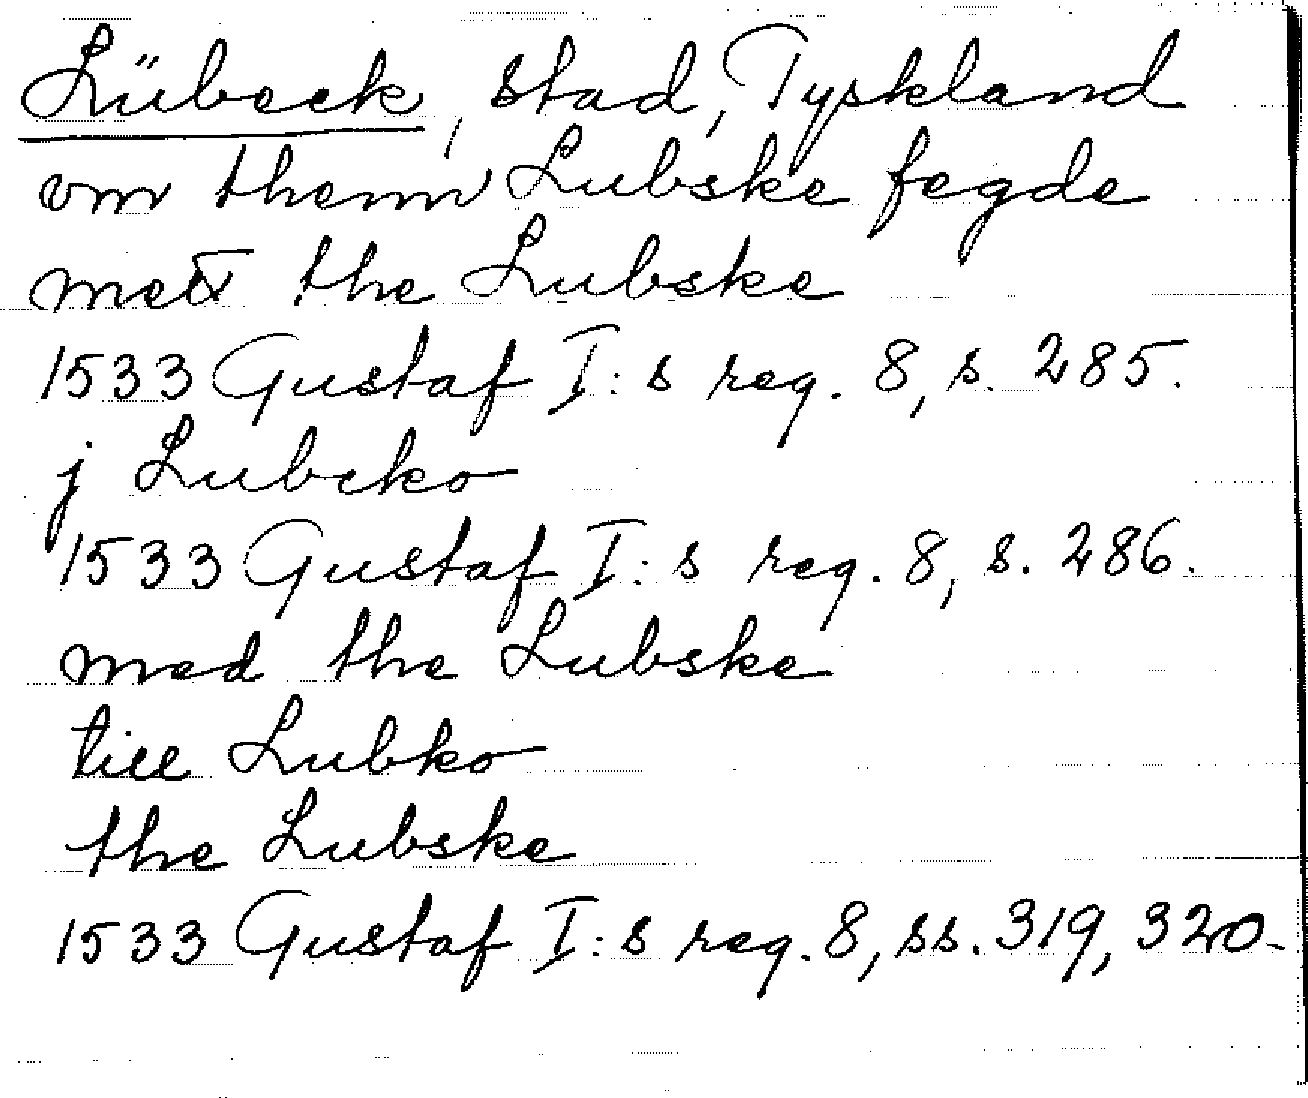 Lübeck, stad, Tyskland
vm thenn Lubske fegde
mett the Lubske
1533 Gustaf I:s reg. 8, s. 285.
j Lubcko
1533 Gustaf I:s reg. 8, s. 286.
med the Lubske
till Lubko
the Lubske
1533 Gustaf I:s reg. 8, ss. 319, 320.